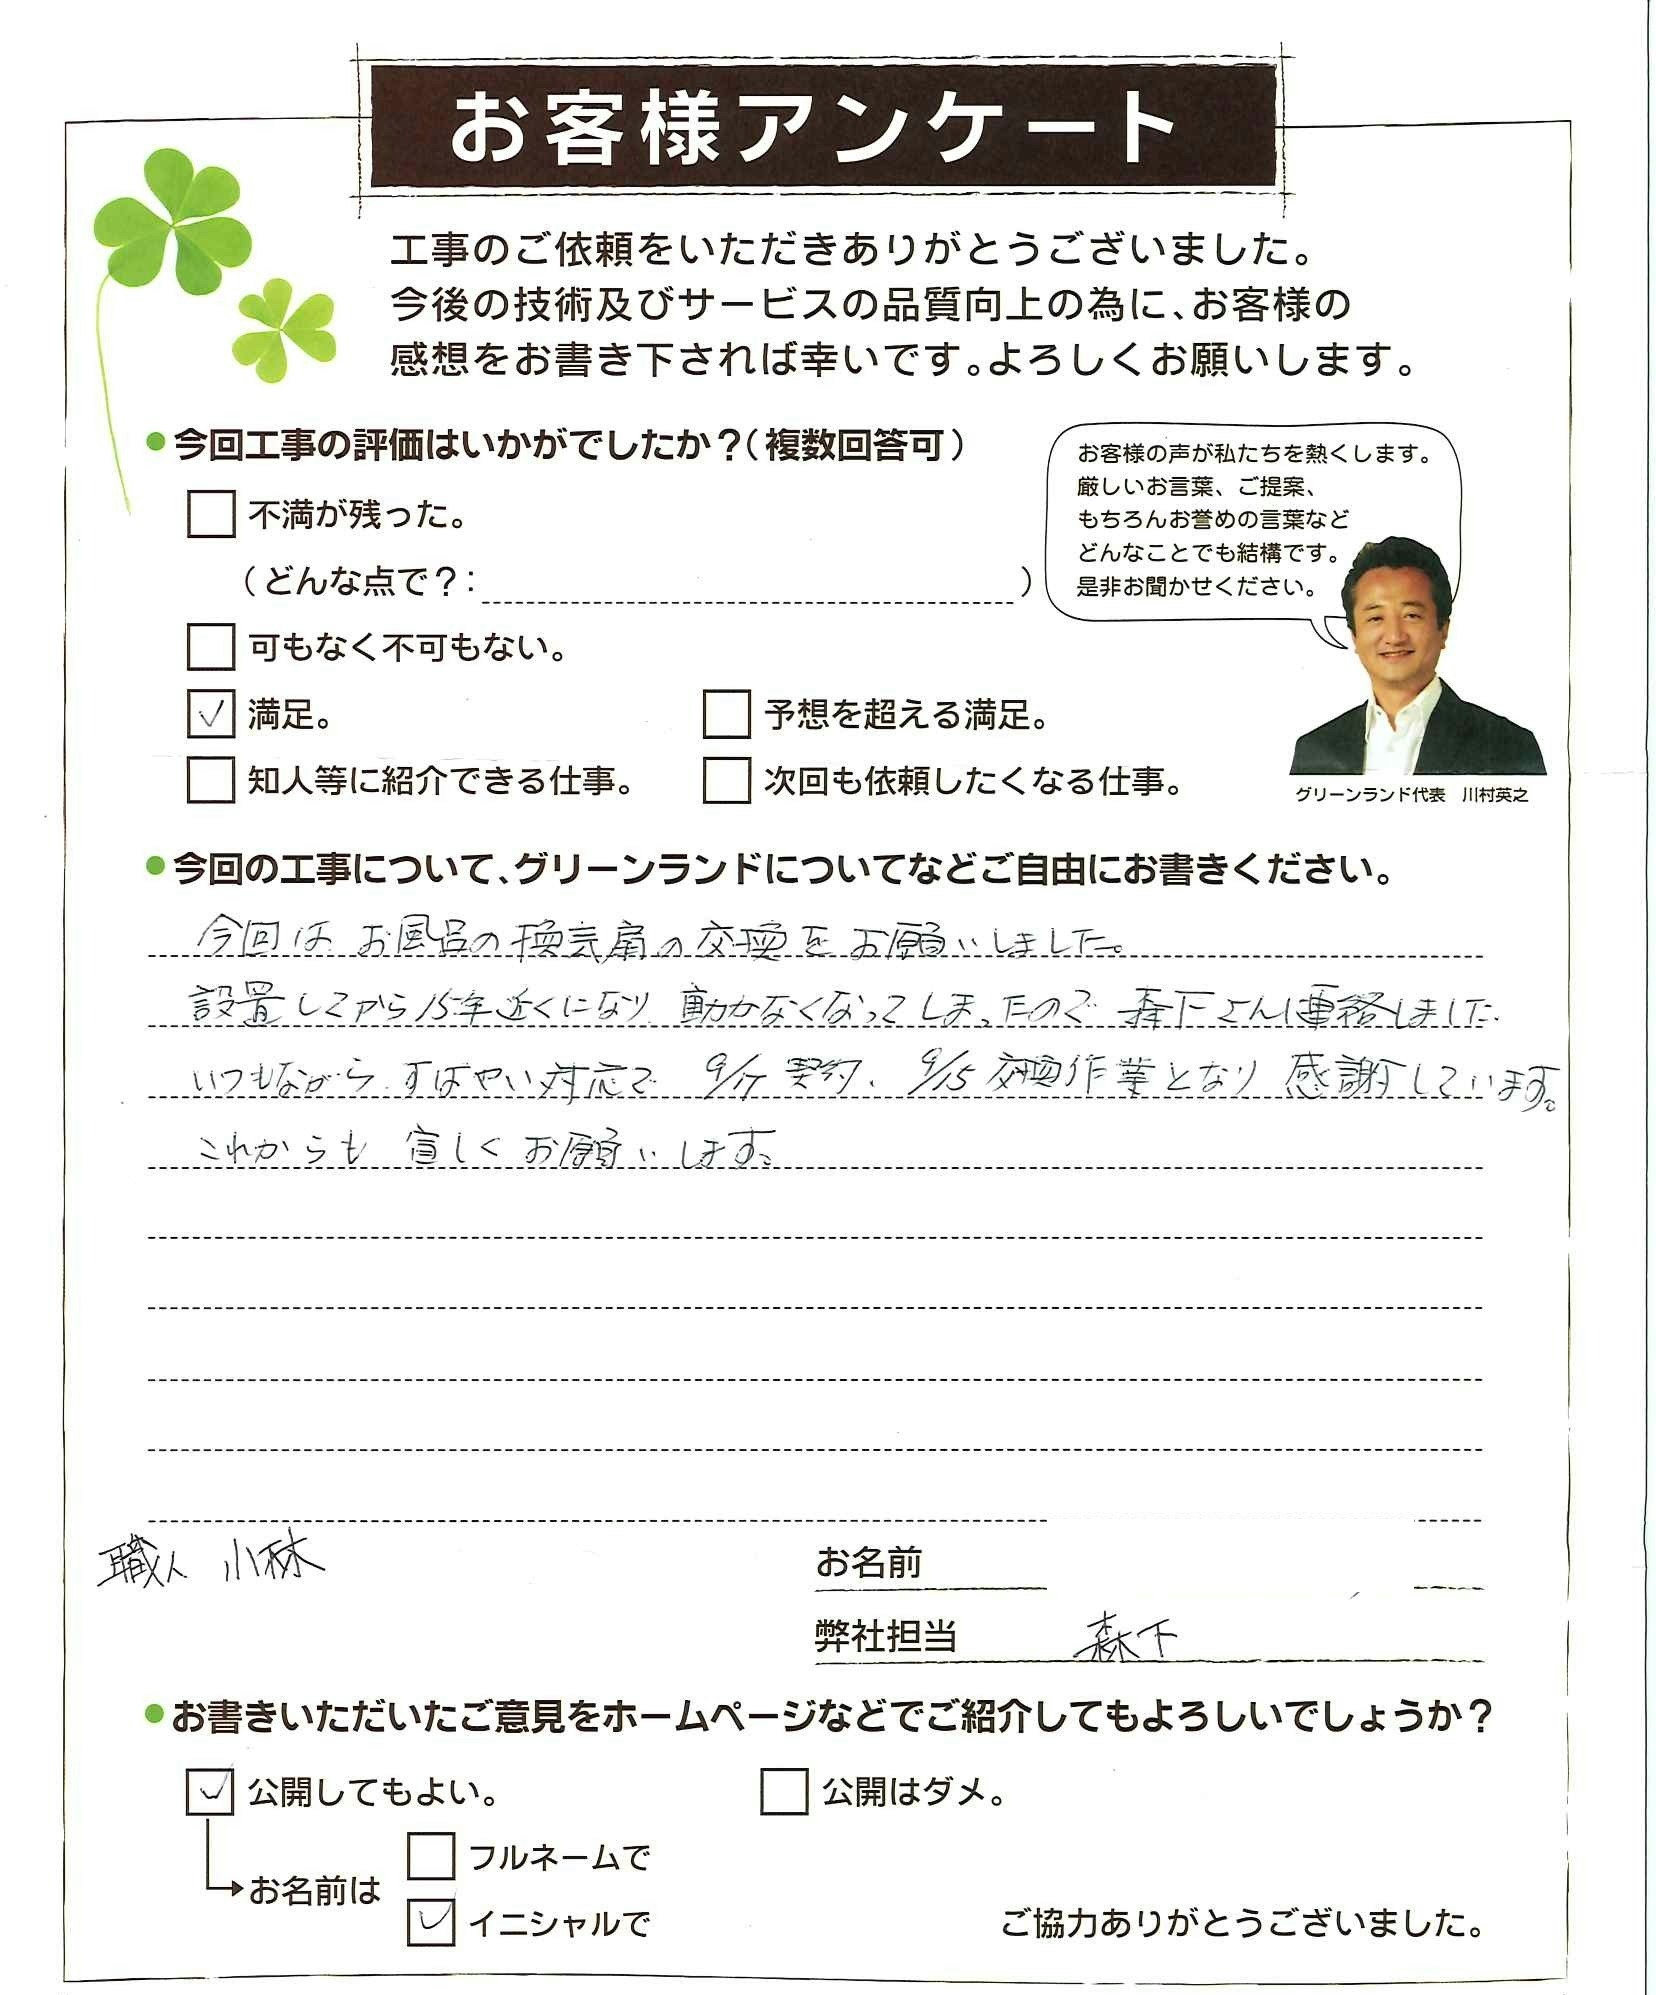 お客様アンケート
工事のご依頼をいただきありがとうございました。
今後の技術及びサービスの品質向上の為に、お客様の
感想をお書き下されば幸いです。よろしくお願いします。
●今回工事の評価はいかがでしたか？（複数回答可）
不満が残った。
（どんな点で？：　）
可もなく不可もない。
✓ 満足。
予想を超える満足。
知人等に紹介できる仕事。
次回も依頼したくなる仕事。
お客様の声が私たちを熱くします。
厳しいお言葉、ご提案、
もちろんお誉めの言葉など
どんなことでも結構です。
是非お聞かせください。
グリーンランド代表　川村英之
●今回の工事について、グリーンランドについてなどご自由にお書きください。
今回は お風呂の換気扇の交換を お願いしました。
設置してから15年近くになり 動かなくなってしまったので 森下さんに連絡しました.
いつもながら すばやい対応で 9/17 契約、9/15 交換作業となり 感謝しています。
これからも 宜しく お願いします。
職人 小林
お名前
弊社担当 森下
●お書きいただいたご意見をホームページなどでご紹介してもよろしいでしょうか？
✓ 公開してもよい。
公開はダメ。
お名前は
フルネームで
✓ イニシャルで
ご協力ありがとうございました。